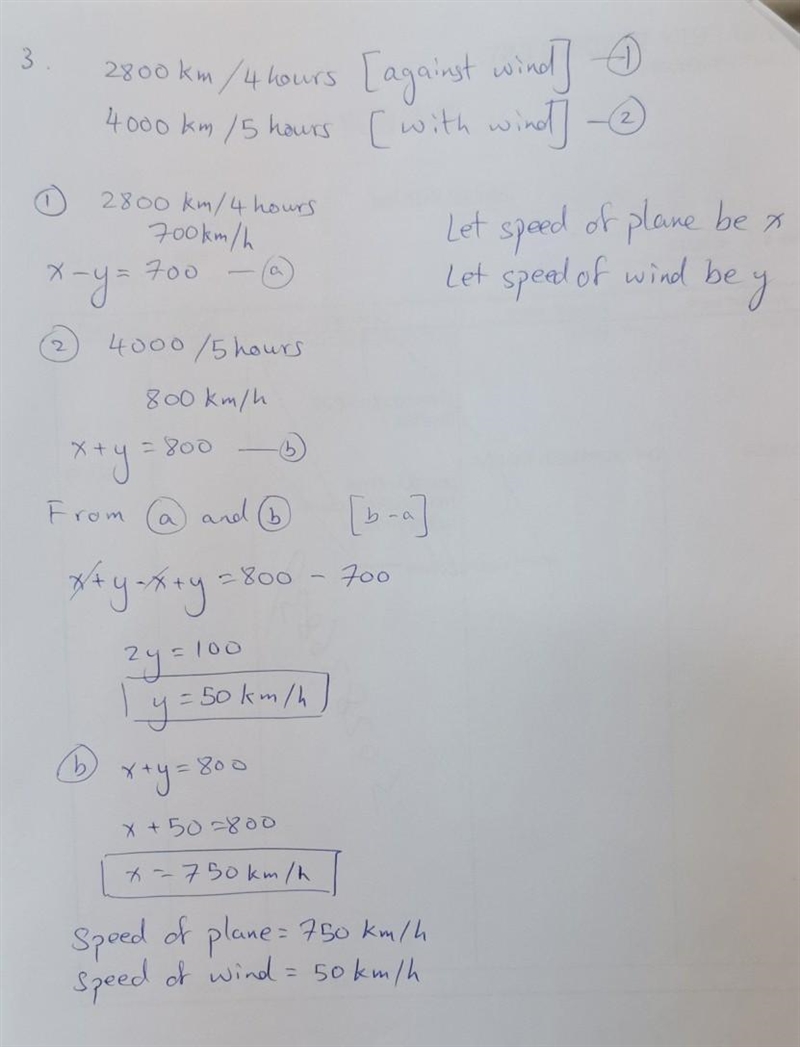 3. 2800 km / 4 hours [against wind] — ①
4000 km / 5 hours [with wind] — ②
① 2800 km / 4 hours
700 km/h
x - y = 700 — ⓐ
Let speed of plane be x
Let speed of wind be y
② 4000 / 5 hours
800 km/h
x + y = 800 — ⓑ
From ⓐ and ⓑ [b - a]
x + y - x + y = 800 - 700
2y = 100
y = 50 km/h
ⓑ x + y = 800
x + 50 = 800
x = 750 km/h
Speed of plane = 750 km/h
Speed of wind = 50 km/h